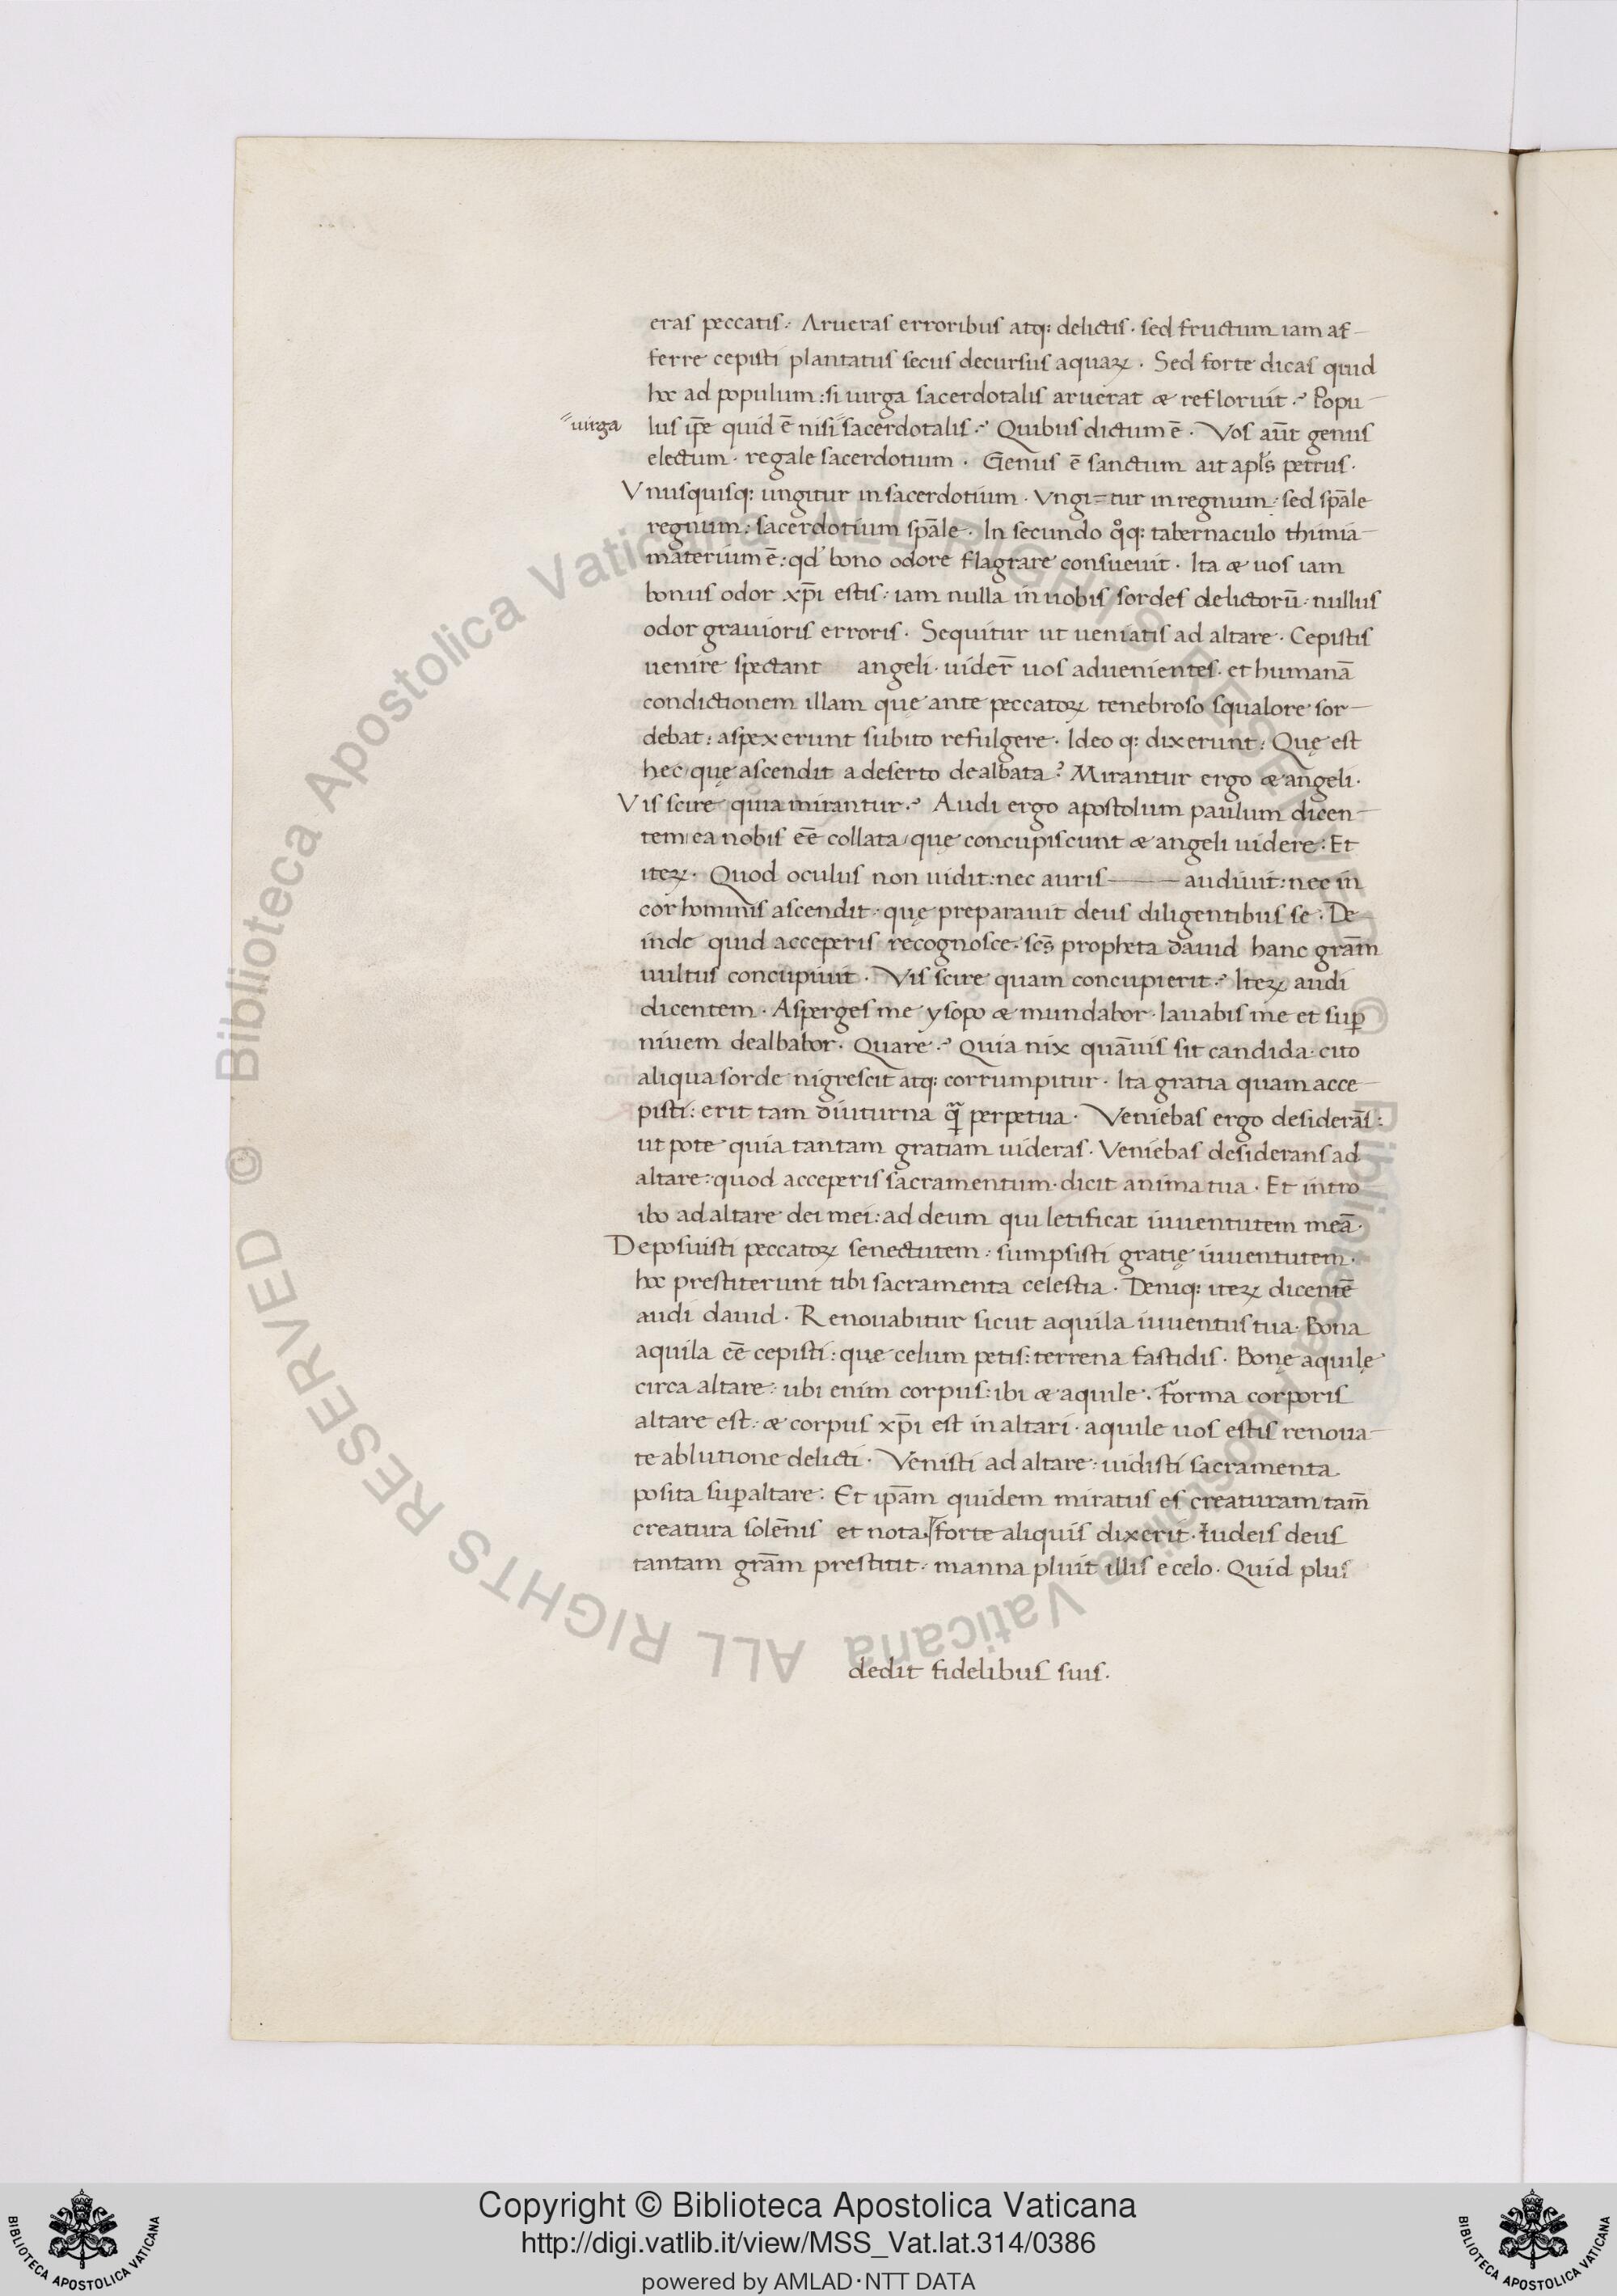 eras peccatis. Arueras erroribus atq: delictis. sed fructum iam af-
ferre cepisti plantatus secus decursus aquaꝝ. Sed forte dicas quid
hoc ad populum: si uirga sacerdotalis aruerat & refloruit? Popu-
uirga
lus ip̄e quid ē nisi sacerdotalis? Quibus dictum ē. Vos aūt genus
electum. regale sacerdotium. Genus ē sanctum ait apl̄s petrus.
Vnusquisq: ungitur in sacerdotium. Vngi=tur in regnum: sed sp̄ale
regnum: sacerdotium sp̄ale. In secundo qͦq: tabernaculo thimia-
materium ē: qd' bono odore flagrare consueuit. Ita & uos iam
bonus odor xp̄i estis: iam nulla in uobis sordes delictorū: nullus
odor grauioris erroris. Sequitur ut ueniatis ad altare. Cepistis
uenire spectant angeli. uider̄ uos aduenientes. et humanā
condictionem illam quę ante peccatoꝝ tenebroso squalore sor-
debat: aspexerunt subito refulgere. Ideo q: dixerunt: Quę est
hec quę ascendit a deserto dealbata? Mirantur ergo & angeli.
Vis scire quia mirantur? Audi ergo apostolum paulum dicen-
tem ea nobis eē collata quę concupiscunt & angeli uidere: Et
iteꝝ. Quod oculus non uidit: nec auris — audiuit: nec in
cor hominis ascendit: quę preparauit deus diligentibus se. De-
inde quid acceperis recognosce. sc̄s propheta dauid hanc grām
uultus concupiuit. Vis scire quam concupierit? Iteꝝ audi
dicentem. Asperges me ysopo & mundabor. lauabis me et sup̄
niuem dealbabor. Quare? Quia nix quāuis sit candida: cito
aliqua sorde nigrescit atq: corrumpitur. Ita gratia quam acce-
pisti: erit tam diuturna qᷓ perpetua. Veniebas ergo desiderās:
ut pote quia tantam gratiam uideras. Veniebas desiderans ad
altare: quod acceperis sacramentum. dicit anima tua. Et intro
ibo ad altare dei mei: ad deum qui letificat iuuentutem meā.
Deposuisti peccatoꝝ senectutem: sumpsisti gratię iuuentutem.
hoc prestiterunt tibi sacramenta celestia. Deniq: iteꝝ dicentē
audi dauid. Renouabitur sicut aquila iuuentus tua. Bona
aquila eē cepisti: que celum petis: terrena fastidis. Bonę aquilę
circa altare: ubi enim corpus: ibi & aquile. Forma corporis
altare est: & corpus xp̄i est in altari. aquile uos estis renoua-
te ablutione delicti. Venisti ad altare: uidisti sacramenta
posita sup̄ altare: Et ip̄am quidem miratus es creaturam tam̄
creatura solēnis et nota. forte aliquis dixerit. Iudeis deus
tantam grām prestitit: manna pluit illis e celo. Quid plus
dedit fidelibus suis.
© Biblioteca Apostolica Vaticana ALL RIGHTS RESERVED
© Biblioteca Apostolica Vaticana ALL RIGHTS RESERVED
Copyright © Biblioteca Apostolica Vaticana
http://digi.vatlib.it/view/MSS_Vat.lat.314/0386
powered by AMLAD·NTT DATA
BIBLIOTECA APOSTOLICA VATICANA
BIBLIOTECA APOSTOLICA VATICANA